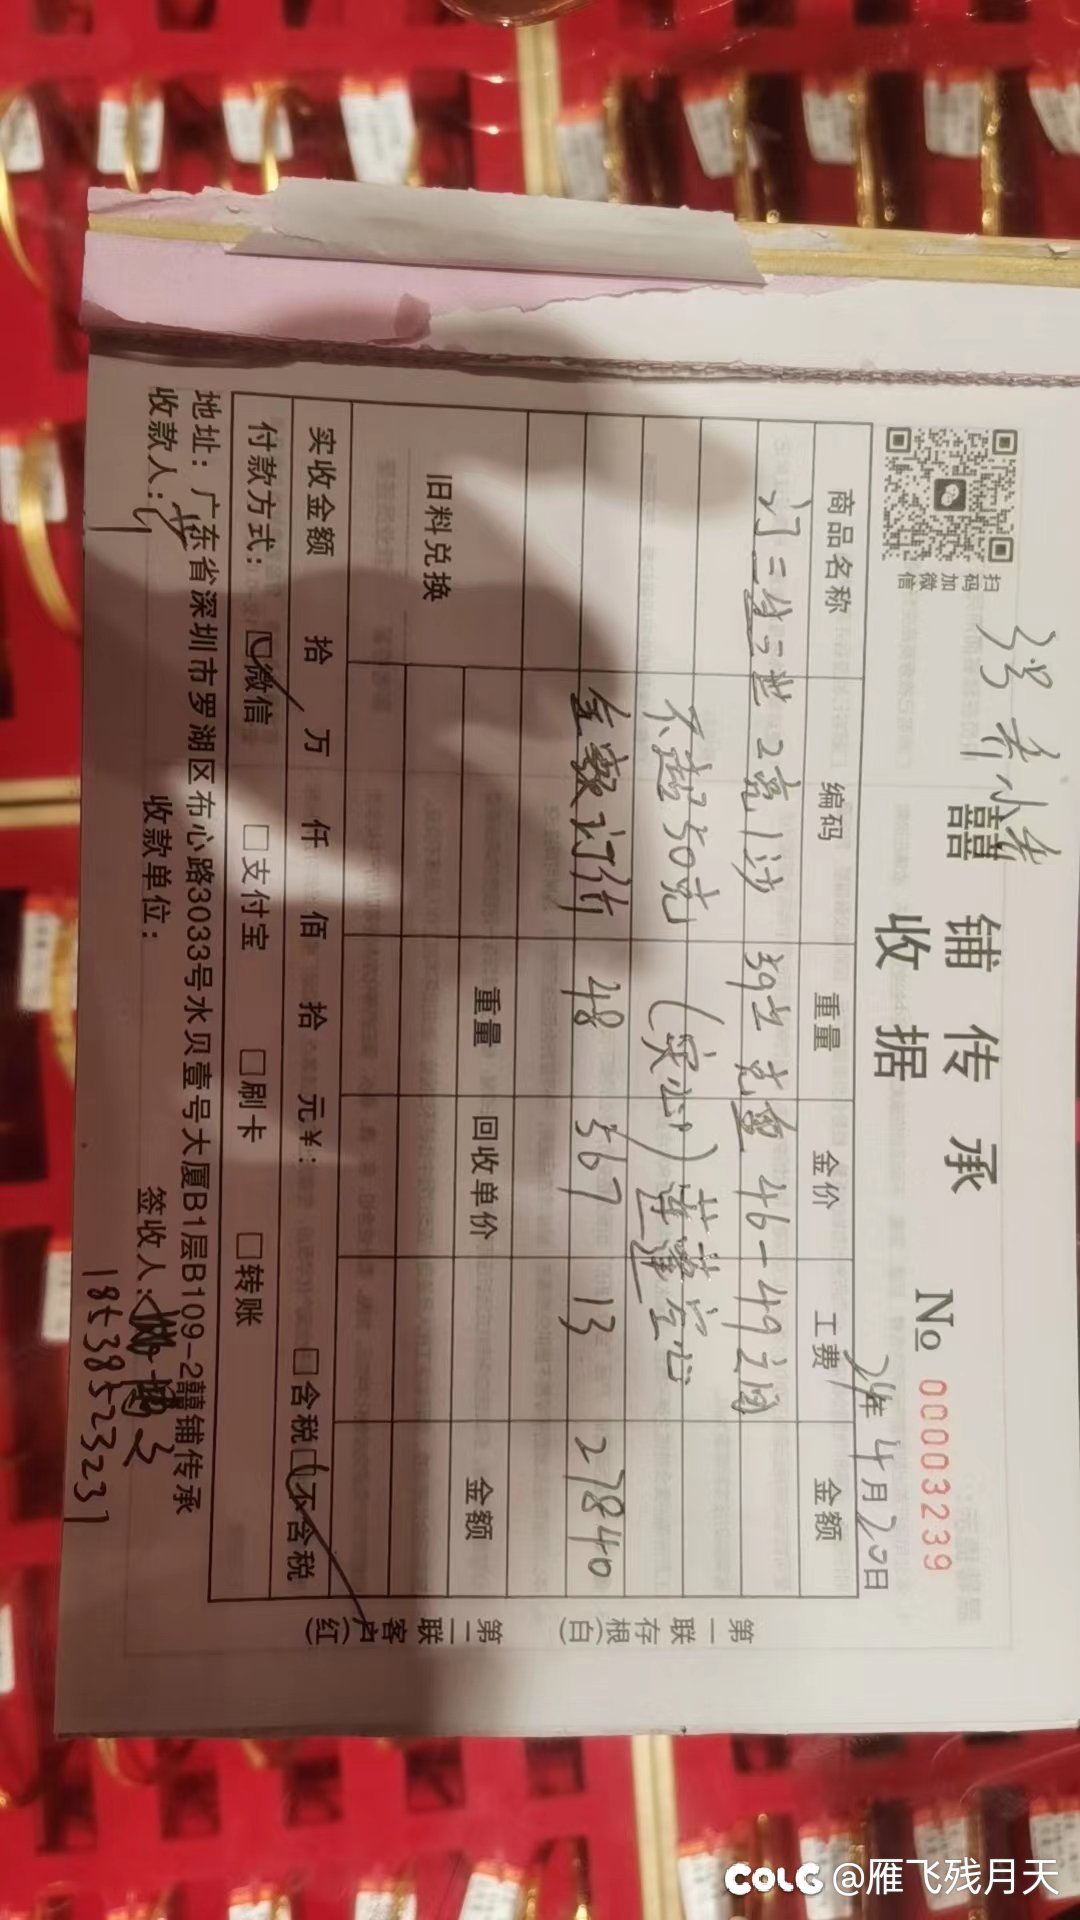 扫码加微信
囍铺传承
收据
No 00003239
24年4月20日
商品名称 编码 重量 金价 工费 金额
订三生三世 2克1沙 46-49之间
不超50克 (实心) 莲蓬空心
全额订价 48 567 13 27840
旧料兑换 重量 回收单价 金额
实收金额 拾 万 仟 佰 拾 元¥: □含税 □不含税
付款方式: □微信 □支付宝 □刷卡 □转账
地址: 广东省深圳市罗湖区布心路3033号水贝壹号大厦B1层B109-2囍铺传承
收款人: 收款单位: 签收人:
18538523231
第一联 存根(白)
第二联 客户(红)
COLG @雁飞残月天